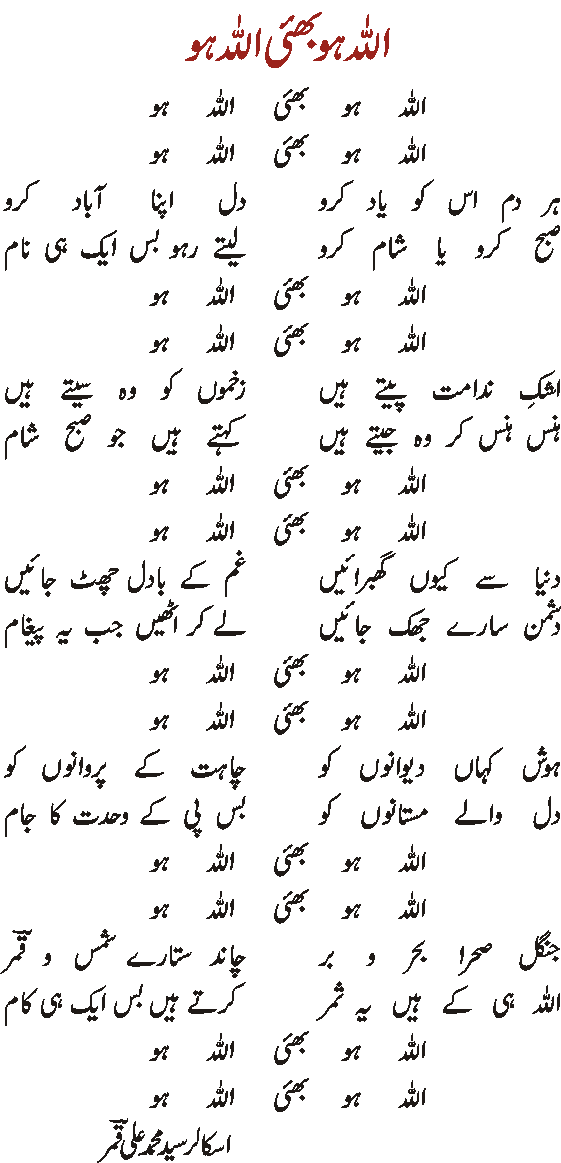 اللہ ہو بھئی اللہ ہو
اللہ ہو بھئی اللہ ہو
اللہ ہو بھئی اللہ ہو
ہر دم اس کو یاد کرو دل اپنا آباد کرو
صبح کرو یا شام کرو لیتے رہو بس ایک ہی نام
اللہ ہو بھئی اللہ ہو
اللہ ہو بھئی اللہ ہو
اشکِ ندامت پیتے ہیں زخموں کو وہ سیتے ہیں
ہنس ہنس کر وہ جیتے ہیں کہتے ہیں جو صبح شام
اللہ ہو بھئی اللہ ہو
اللہ ہو بھئی اللہ ہو
دنیا سے کیوں گھبرائیں غم کے بادل چھٹ جائیں
دشمن سارے جھک جائیں لے کر اٹھیں جب یہ پیغام
اللہ ہو بھئی اللہ ہو
اللہ ہو بھئی اللہ ہو
ہوش کہاں دیوانوں کو چاہت کے پروانوں کو
دل والے مستانوں کو بس پی کے وحدت کا جام
اللہ ہو بھئی اللہ ہو
اللہ ہو بھئی اللہ ہو
جنگل صحرا بحر و بر چاند ستارے شمس و قمرؔ
اللہ ہی کے ہیں یہ ثمر کرتے ہیں بس ایک ہی کام
اللہ ہو بھئی اللہ ہو
اللہ ہو بھئی اللہ ہو
اسکالر سید محمد علی قمرؔ